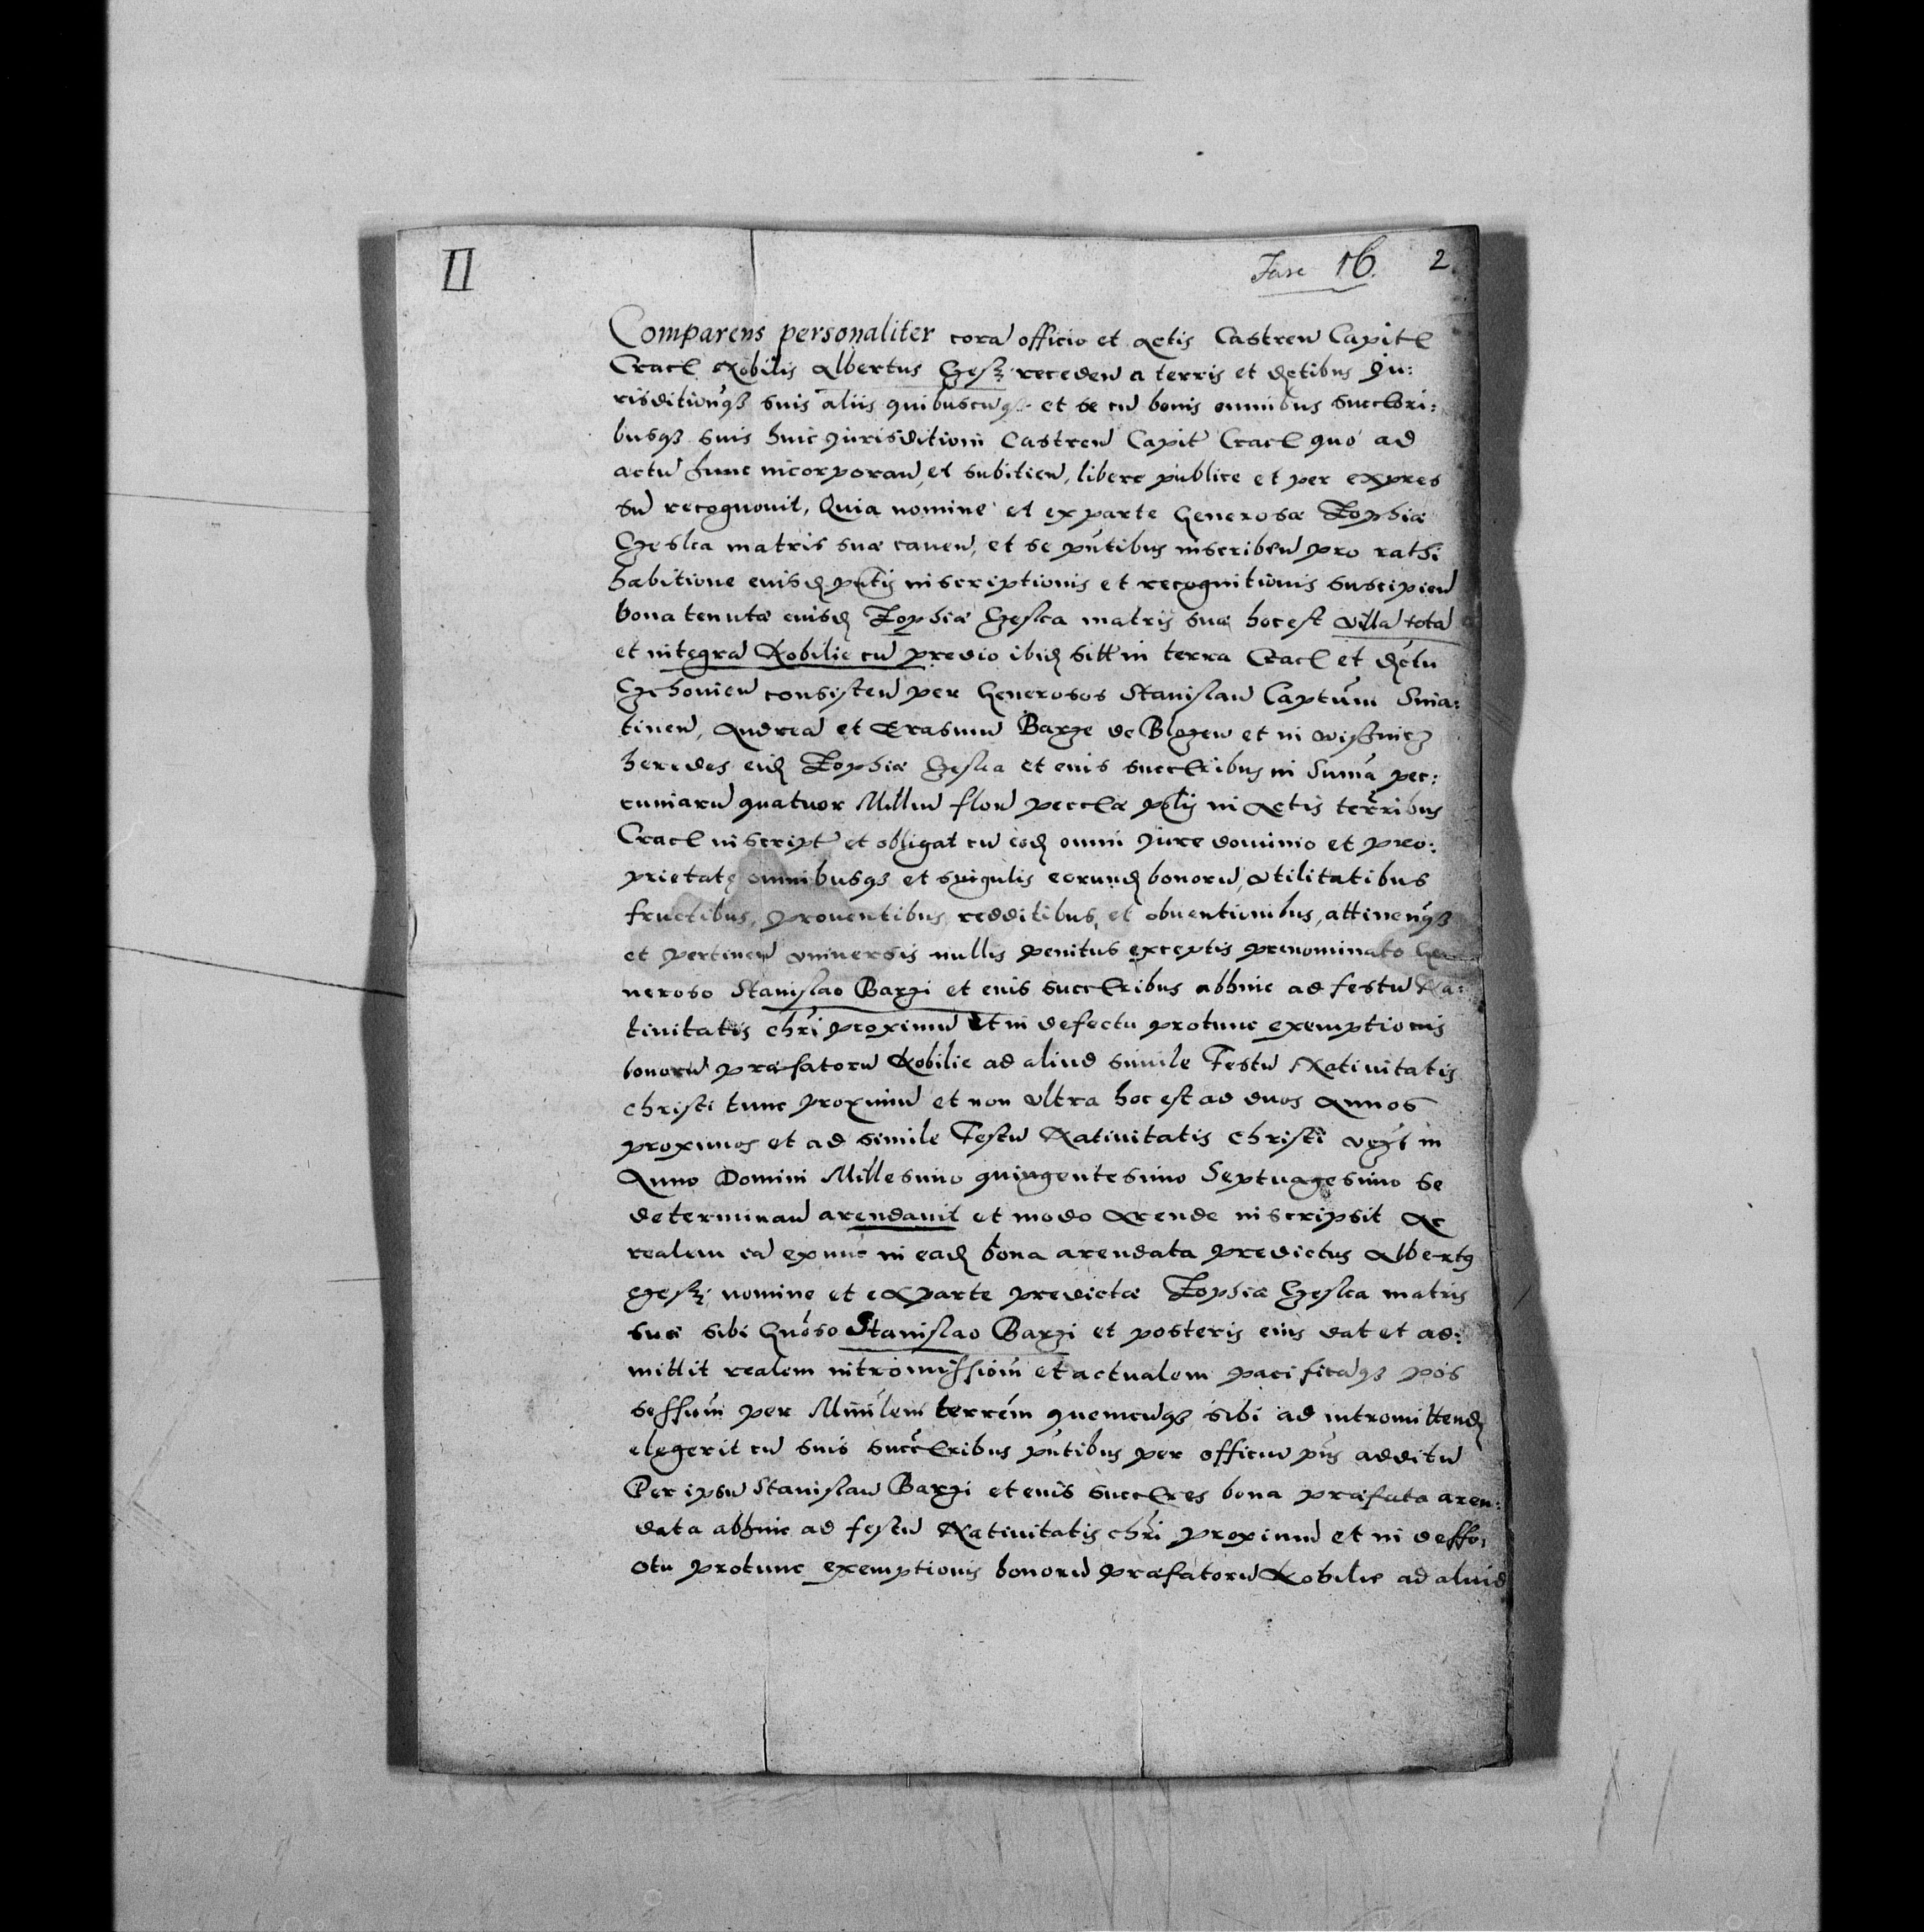 II
Fasc 16. 2
Comparens personaliter corā officio et Actis Castren Capit
Crac Nobilis Albertus receden a terris et dctibus Ju:
risditionūqʒ suis aliis quibuscūqʒ et se cū bonis omnibus succori:
busqʒ suis huic Jurisditioni Castren Capit Crac quo ad
actū hunc incorporan, et subiicien, libere publice et per expres
sū recognovit, Quia nomine et ex parte Generosæ Zophiæ
matris suæ caven, et se pñtibus inscriben pro rathi
habitione eiusd pñtis inscriptionis et recognitionis suscipien
bona tenutæ eiusd Zophiæ matris suæ hoc est villā totā
et integrā Kobilie cū predio ibid sitt in terra Crac et dctu
consisten per Generosos Stanislaū Captūm Snia:
tinen, Andreā et Erasmū Barze de Blozew et in
heredes eid Zophiæ et eius succribus in Summa pec:
cuniarū quatuor Milliū floū pecclæ in Actis terribus
Crac inscript et obligat cū eod omni Jure dominio et pro:
prietate omnibusqʒ et singulis eorund bonorū, vtilitatibus
fructibus, proventibus, redditibus, et obventionibus, attinenqʒ
et pertinen vniversis nullis penitus exceptis prenominato Ge
neroso Stanislao Barzi et eius succribus abhinc ad festū Na:
tivitatis chri proximū Et in defectu protunc exemptionis
bonorū præfatorū Kobilie ad aliud simile Festū Nativitatis
christi tunc proximū et non vltra hoc est ad duos Annos
proximos et ad simile Festū Nativitatis christi in
Anno Domini Millesimo quingentesimo Septuagesimo se
determinan arendavit et modo Arende inscripsit Ac
realem ex nunc in ead bona arendata predictus Albertꝯ
nomine et ex parte predictæ Zophiæ matris
suæ sibi Gnoso Stanislao Barzi et posteris eius dat et ad:
mittit realem intromissioīm et actualem pacificāqʒ pos
sessioīm per terrēm quemcūqʒ sibi ad intromittend
elegerit cū suis succribus pñtibus per officiū pñs additū
Per ipsū Stanislaū Barzi et eius succres bona præfata aren:
data abhinc ad festū Nativitatis chri proximū et in deffe:
ctu protunc exemptionis bonorū præfatorū Kobilie ad aliud